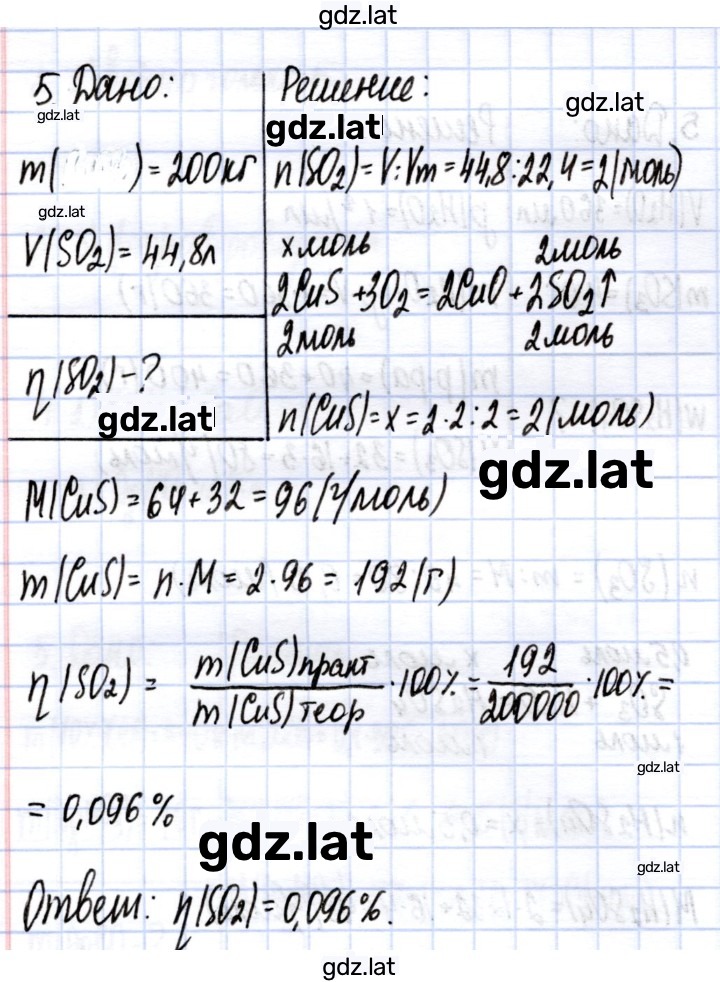 gdz.lat
5 Дано:
gdz.lat
m( ) = 200кг
gdz.lat
V(SO₂) = 44,8л
η(SO₂) - ?
gdz.lat
Решение:
gdz.lat
gdz.lat
n(SO₂) = V : Vm = 44,8 : 22,4 = 2(моль)
x моль 2 моль
2CuS + 3O₂ = 2CuO + 2SO₂↑
2 моль 2 моль
n(CuS) = x = 2·2 : 2 = 2(моль)
gdz.lat
M(CuS) = 64 + 32 = 96(г/моль)
m(CuS) = n · M = 2 · 96 = 192(г)
η(SO₂) = m(CuS)практ / m(CuS)теор · 100% = 192 / 200000 · 100% =
gdz.lat
= 0,096%
gdz.lat
gdz.lat
Ответ: η(SO₂) = 0,096%.
gdz.lat